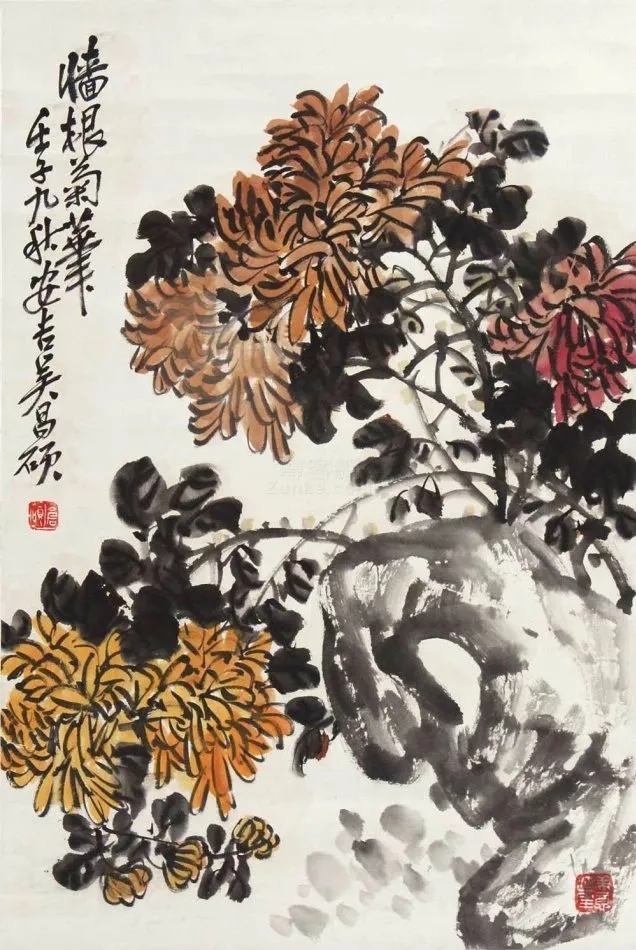 牆根菊華
壬子九秋安吉吴昌碩